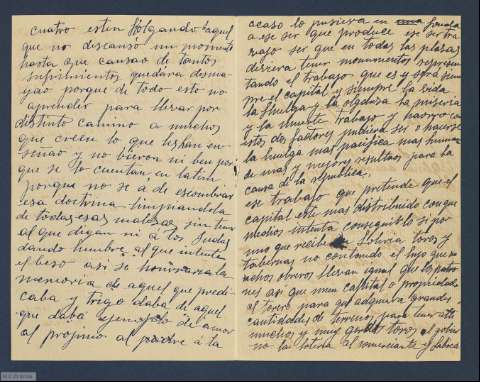 cuatro esten Holgando aquel
que no descansó un momento
hasta que cansao de tantos
sufrimientos quedara desma
yao porque de todo esto no
aprender para llevar por
distinto camino a muchos
que creen lo que les han en
señao y no bieron ni ben por
que se lo cuentan en latin
porque no se a de escombrar
esa doctrina limpiandola
de todas esas malezas sin
al que digan ni a los Judas
dando lumbre al que intenta
el beso asi se honrara la
memoria de aquel que predi
caba y trigo daba de aquel
que daba ejemplo de amor
al projimo al padre a la
acaso lo pusiera en
a ese ser que produce ese ser tra
vajo ser que en todas las plasas
deviera tener monumentos represen
tando el trabajo que es y sera siem
pre el capital y siempre la vida
la Huelga y la olganza la miseria
y la muerte trabajo y haorro con
estos dos factores pudiera ser o hacerse
la huelga mas pacifica mas humana
de mas y mejores resultaos para la
causa de la republica.
ese trabajo que pretende que el
capital este mas distribuido con que
medios intenta conseguirlo si
uno que recibe Loteria toros y
tabernas no contando el lujo que
muchos obreros llevan igual que los patro
nes asi que unen capital o propiedades
al torero para que adquiera grandes
cantidades de terreno para
muchos y muy toros al gobier
no la loteria al comerciante y fabrica